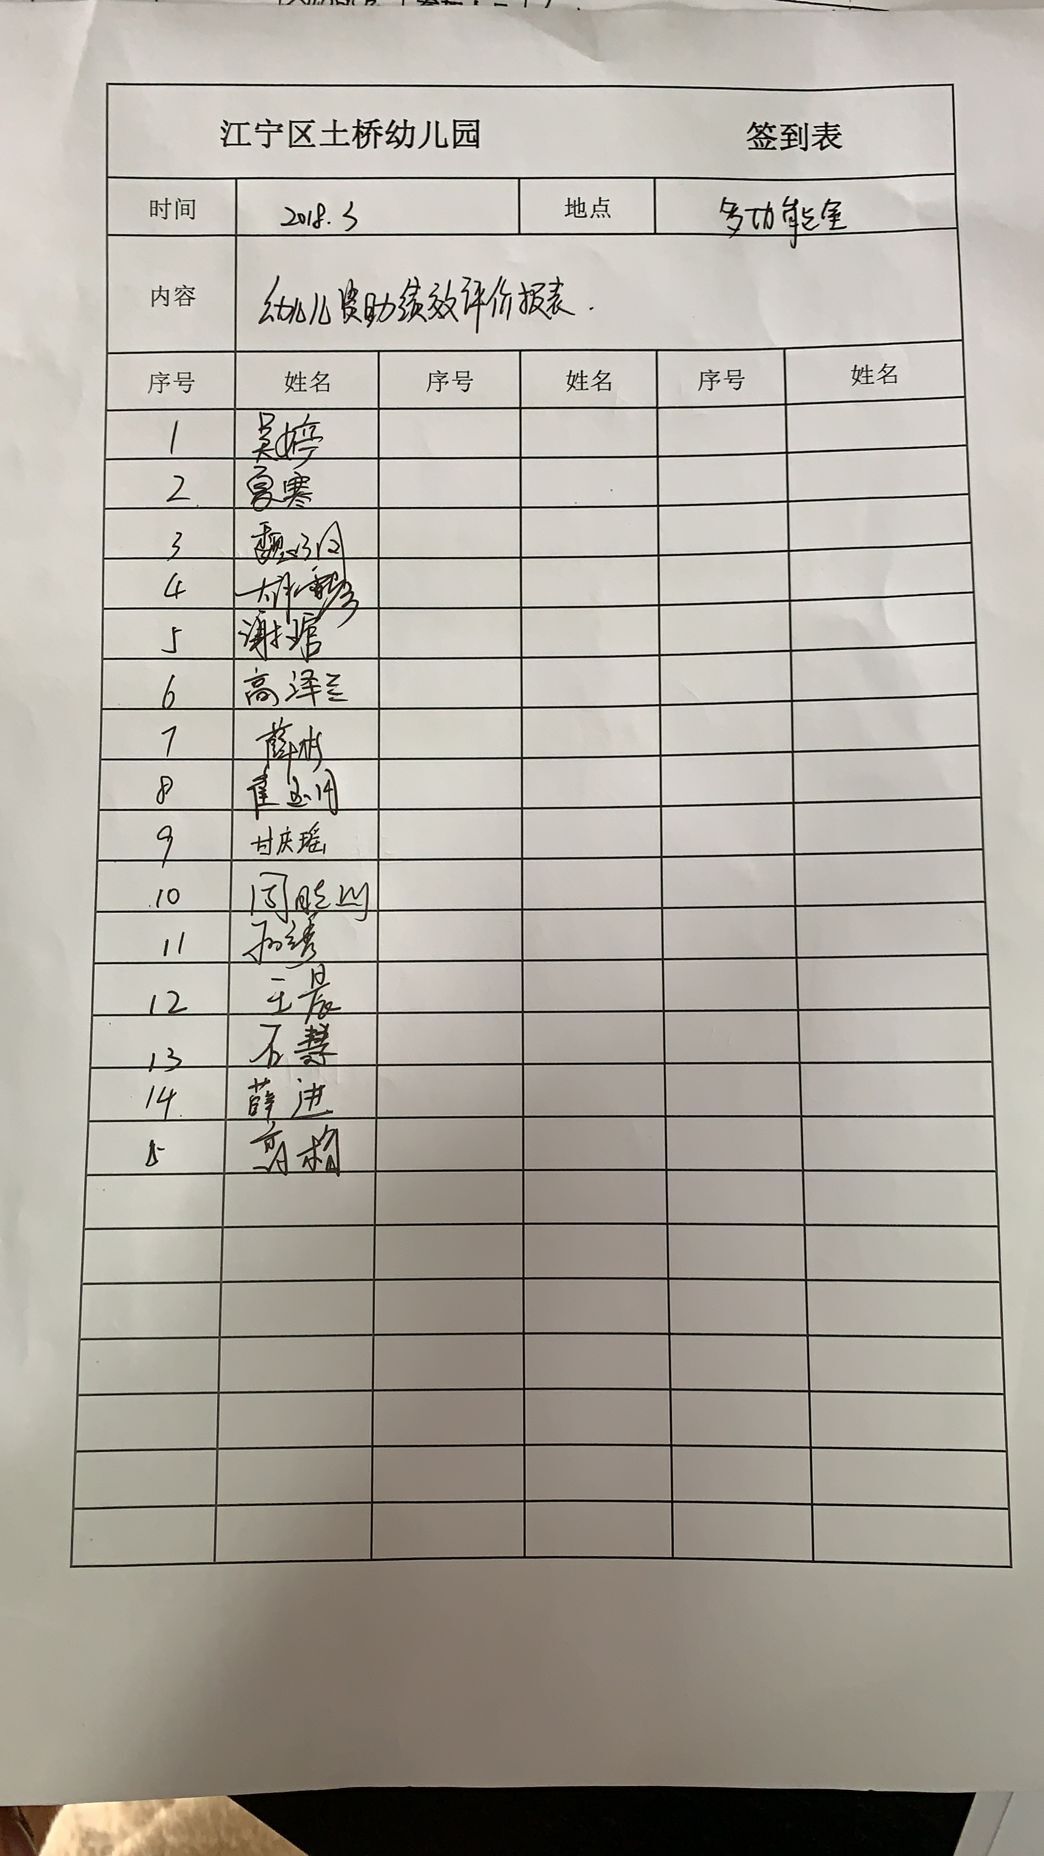 江宁区土桥幼儿园 签到表
时间 2018.3 地点 多功能室
内容 幼儿资助绩效评价报表.
序号 姓名 序号 姓名 序号 姓名
1 吴婷
2 夏寒
3
4
5 谢
6 高泽兰
7 薛
8 崔
9 甘庆瑶
10 闵晓
11 孙诱
12 王晨
13 石慧
14 薛进
15 高